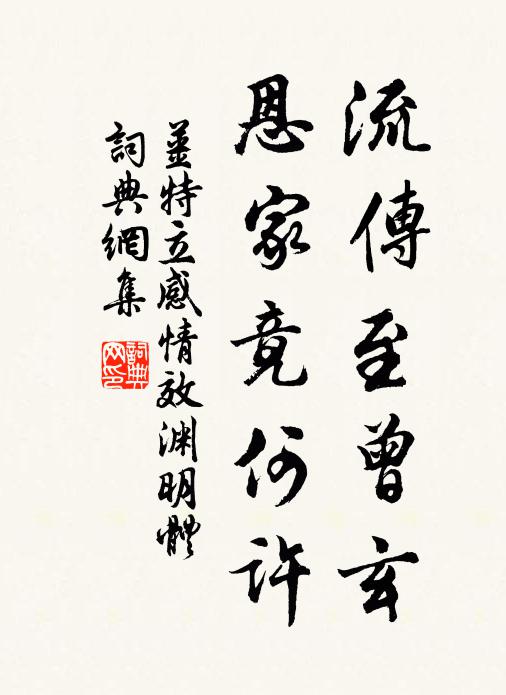 流傳至曾玄
恩家竟何許
姜特立感情效淵明體
詞典網集
詞典網印